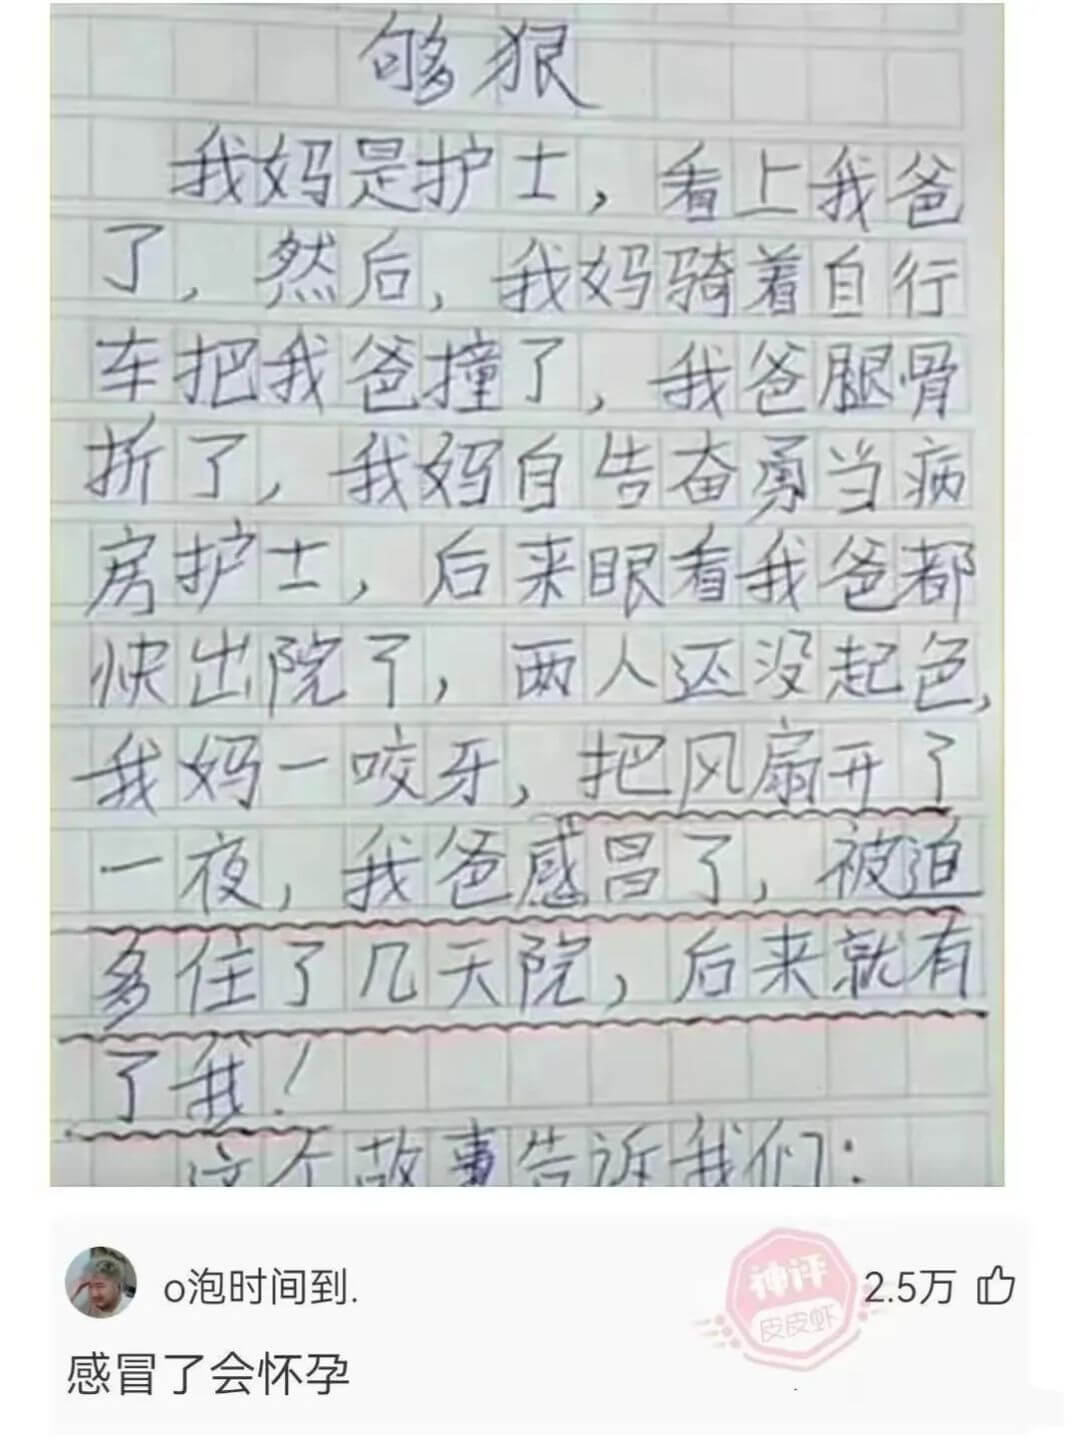 够狠
我妈是护士，看上我爸
了，然后，我妈骑着自行
车把我爸撞了，我爸腿骨
折了，我妈自告奋勇当病
房护士，后来眼看我爸都
快出院了，两人还没起色，
我妈一咬牙，把风扇开了
一夜，我爸感冒了，被迫
多住了几天院，后来就有
了我！
这个故事告诉我们：
o泡时间到.
神评
皮皮虾
2.5万
感冒了会怀孕